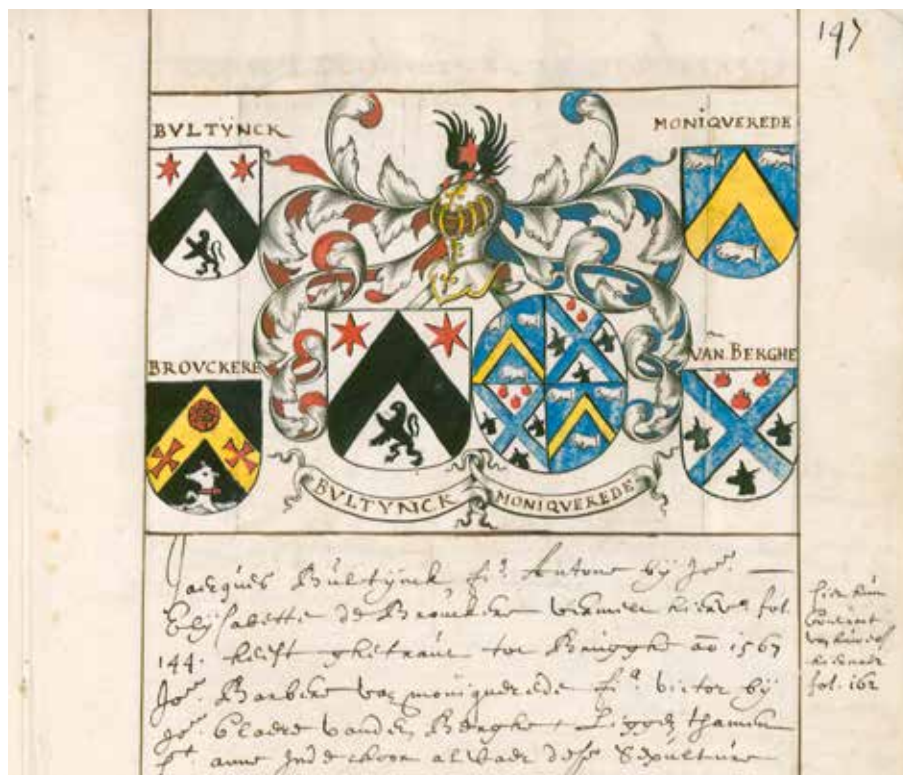 197
BVLTYNCK
MONIQVEREDE
BROVCKERE
VAN BERGHE
BVLTYNCK MONIQVEREDE
Jacques Bultynck fs. Antone bij Joe.
Elijsabette de Brouckere fol
144. heeft ghetraut tot Brugghe ao 1567
Joe. Barbere van moniquerede fa. Victor bij
Joe. Claere vanden Berghe
St anne Inde choor alwaer dese Sepulture
fol. 162